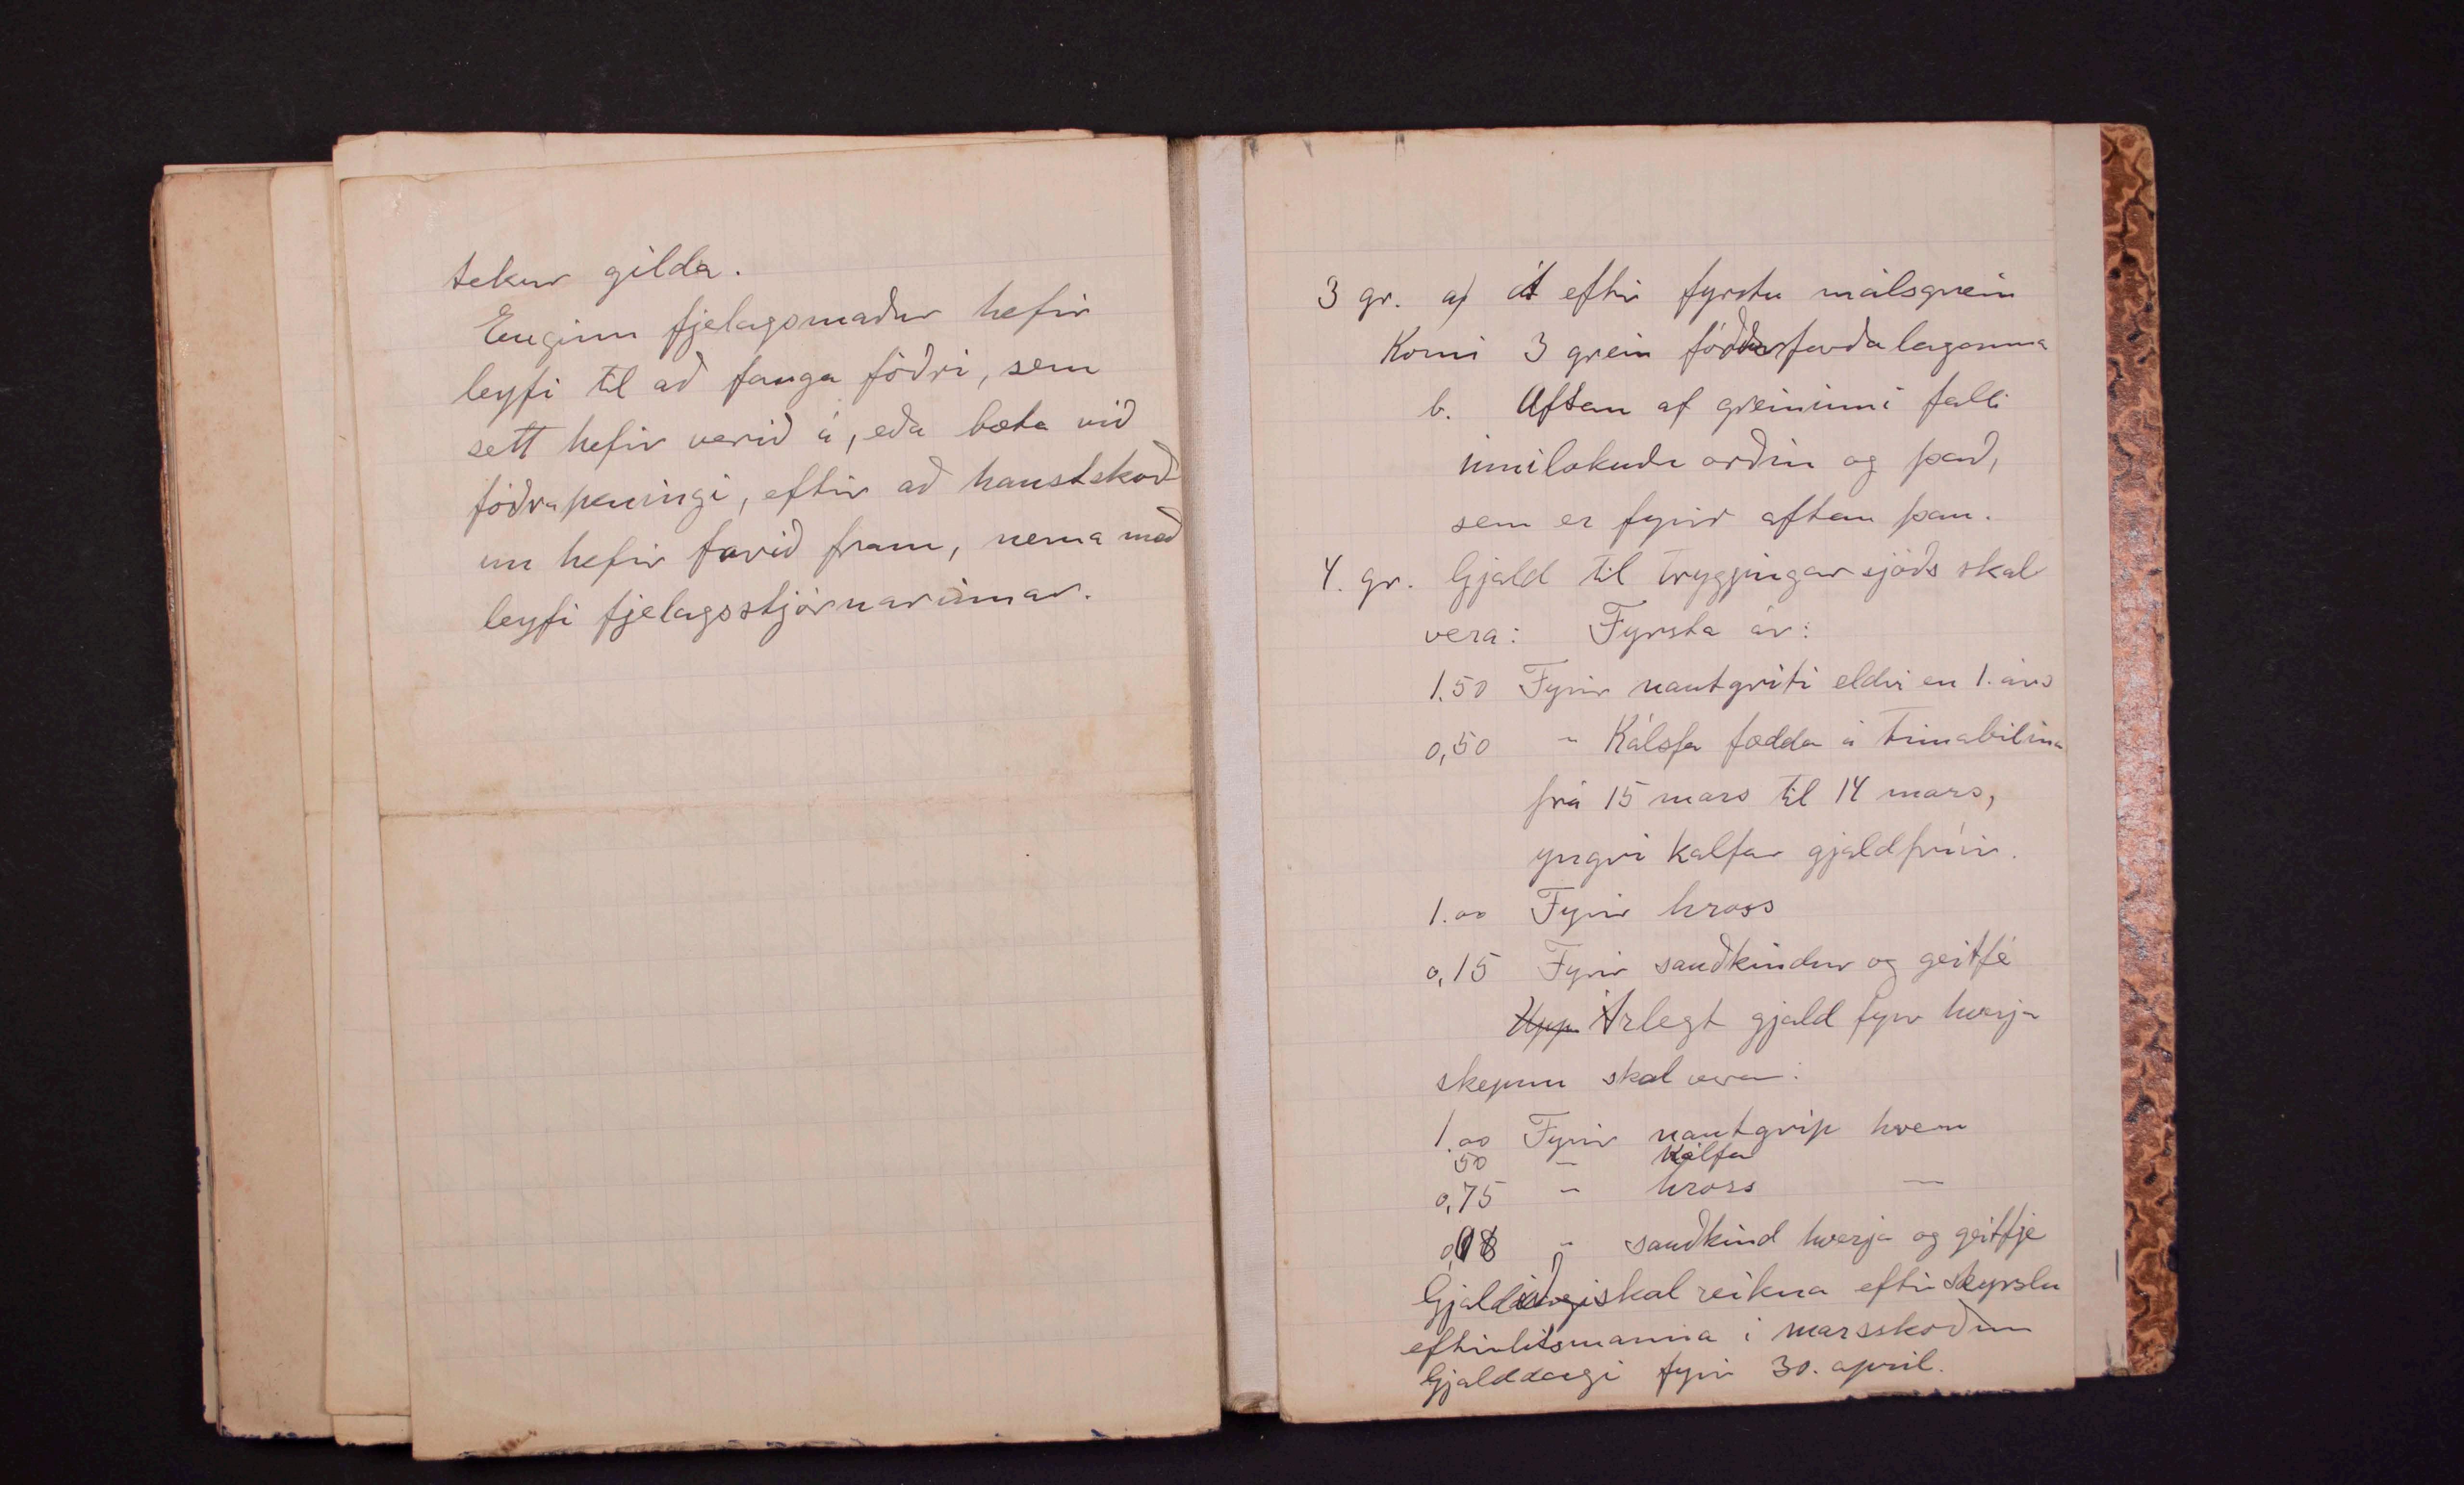 tekur gilda.
Enginn fjelagsmaður hefir
leyfi til að fanga fóðri, sem
sett hefir verið á, eða bæta við
fóðrapeningi, eftir að haustskoð
un hefir farið fram, nema með
leyfi fjelagsstjórnarinnar.
3 gr. a) át eftir fyrstu málsgrein
Komi 3 grein fóðurforðalaganna
b. Aftan af greininni falli
innilokuðu orðin og það,
sem er fyrir aftan þau.
4. gr. Gjald til tryggingarsjóðs skal
vera: Fyrsta ár:
1.50 Fyrir nautgriti eldri en 1. árs
0,50 " Kálfa fædda á tímabilinu
frá 15 mars til 14 mars,
yngri kalfar gjaldfríir.
1.00 Fyrir hross
0,15 Fyrir sauðkindur og geitfé
Upp Árlegt gjald fyrir hverja
skepnu skal vera:
1.00 Fyrir nautgrip hvern
50 " Kálfa
0,75 " hross —
0,08 " sauðkind hverja og geitfje
Gjaldið skal reikna eftir skyrslu
eftirlitsmanna í marsskoðun
Gjalddagi fyrir 30. april.